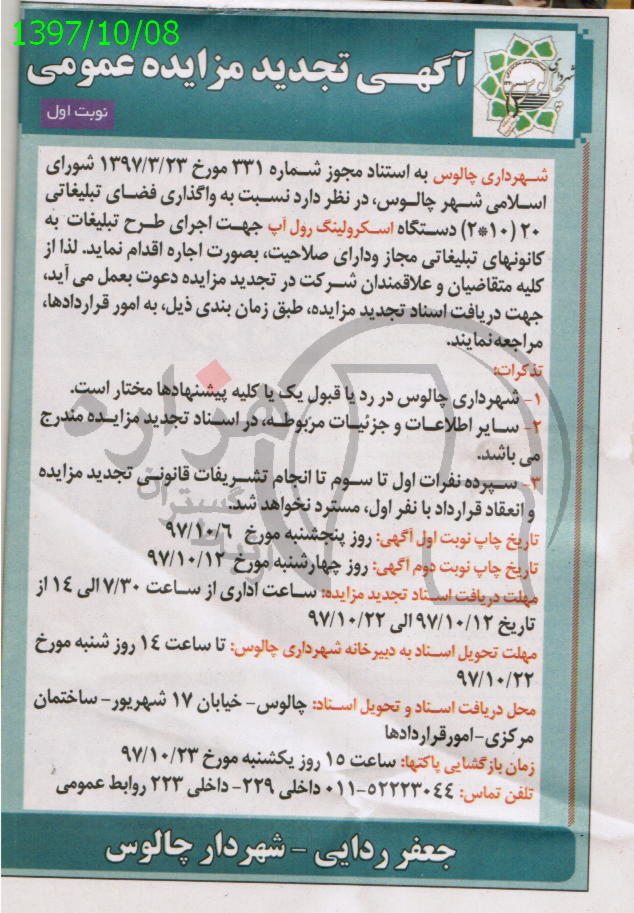 1397/10/08
آگهی تجدید مزایده عمومی
شهرداری چالوس
نوبت اول
شهرداری چالوس به استناد مجوز شماره ۳۳۱ مورخ ۱۳۹۷/۳/۲۳ شورای
اسلامی شهر چالوس، در نظر دارد نسبت به واگذاری فضای تبلیغاتی
۲۰ (۱۰*۲) دستگاه اسکرولینگ رول آپ جهت اجرای طرح تبلیغات به
کانونهای تبلیغاتی مجاز ودارای صلاحیت، بصورت اجاره اقدام نماید. لذا از
کلیه متقاضیان و علاقمندان شرکت در تجدید مزایده دعوت بعمل می آید،
جهت دریافت اسناد تجدید مزایده، طبق زمان بندی ذیل، به امور قراردادها،
مراجعه نمایند.
تذکرات:
۱- شهرداری چالوس در رد یا قبول یک یا کلیه پیشنهادها مختار است.
۲- سایر اطلاعات و جزئیات مربوطه، در اسناد تجدید مزایده مندرج
می باشد.
۳- سپرده نفرات اول تا سوم تا انجام تشریفات قانونی تجدید مزایده
و انعقاد قرارداد با نفر اول، مسترد نخواهد شد.
تاریخ چاپ نوبت اول آگهی: روز پنجشنبه مورخ ۹۷/۱۰/۶
تاریخ چاپ نوبت دوم آگهی: روز چهارشنبه مورخ ۹۷/۱۰/۱۲
مهلت دریافت اسناد تجدید مزایده: ساعت اداری از ساعت ۷/۳۰ الی ۱۴ از
تاریخ ۹۷/۱۰/۱۲ الی ۹۷/۱۰/۲۲
مهلت تحویل اسناد به دبیرخانه شهرداری چالوس: تا ساعت ۱۴ روز شنبه مورخ
۹۷/۱۰/۲۲
محل دریافت اسناد و تحویل اسناد: چالوس- خیابان ۱۷ شهریور- ساختمان
مرکزی-امورقراردادها
زمان بازگشایی پاکتها: ساعت ۱۵ روز یکشنبه مورخ ۹۷/۱۰/۲۳
تلفن تماس: ۵۲۲۲۳۰۴۴-۰۱۱ داخلی ۲۲۹- داخلی ۲۲۳ روابط عمومی
جعفر ردایی - شهردار چالوس
هزاره
گستران